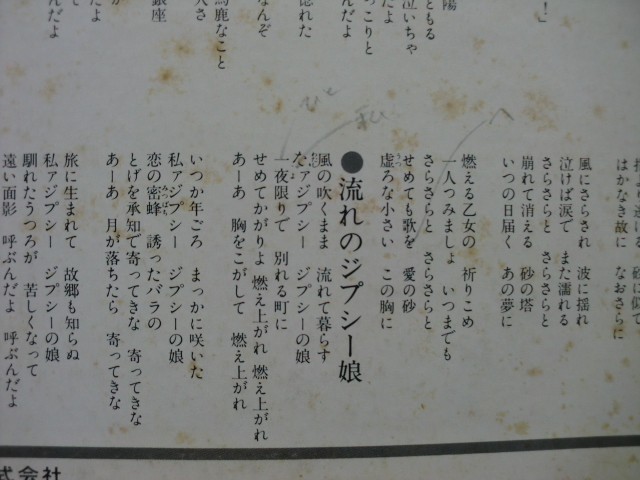 陽
ともる
泣いちゃ
だよ
っこりと
惚れた
んだよ
なんぞ
馬鹿なこと
入さ
銀座
たよ
んだよ
はかなき故に なおさらに
風にさらされ 波に揺れ
泣けば涙で また濡れる
さらさらと さらさらと
崩れて消える 砂の塔
いつの日届く あの夢に
燃える乙女の 祈りこめ
一人つみましょ いつまでも
さらさらと さらさらと
せめても歌を 愛の砂
虚ろな小さい この胸に
●流れのジプシー娘
風の吹くまま 流れて暮らす
なァジプシー ジプシーの娘
一夜限りで 別れる町に
せめてかがりよ 燃え上がれ 燃え上がれ
あーあ 胸をこがして 燃え上がれ
いつか年ごろ まっかに咲いた
私ァジプシー ジプシーの娘
恋の密蜂 誘ったバラの
とげを承知で寄ってきな 寄ってきな
あーあ 月が落ちたら 寄ってきな
旅に生まれて 故郷も知らぬ
私ァジプシー ジプシーの娘
馴れたうつろが 苦しくなって
遠い面影 呼ぶんだよ 呼ぶんだよ
式会社